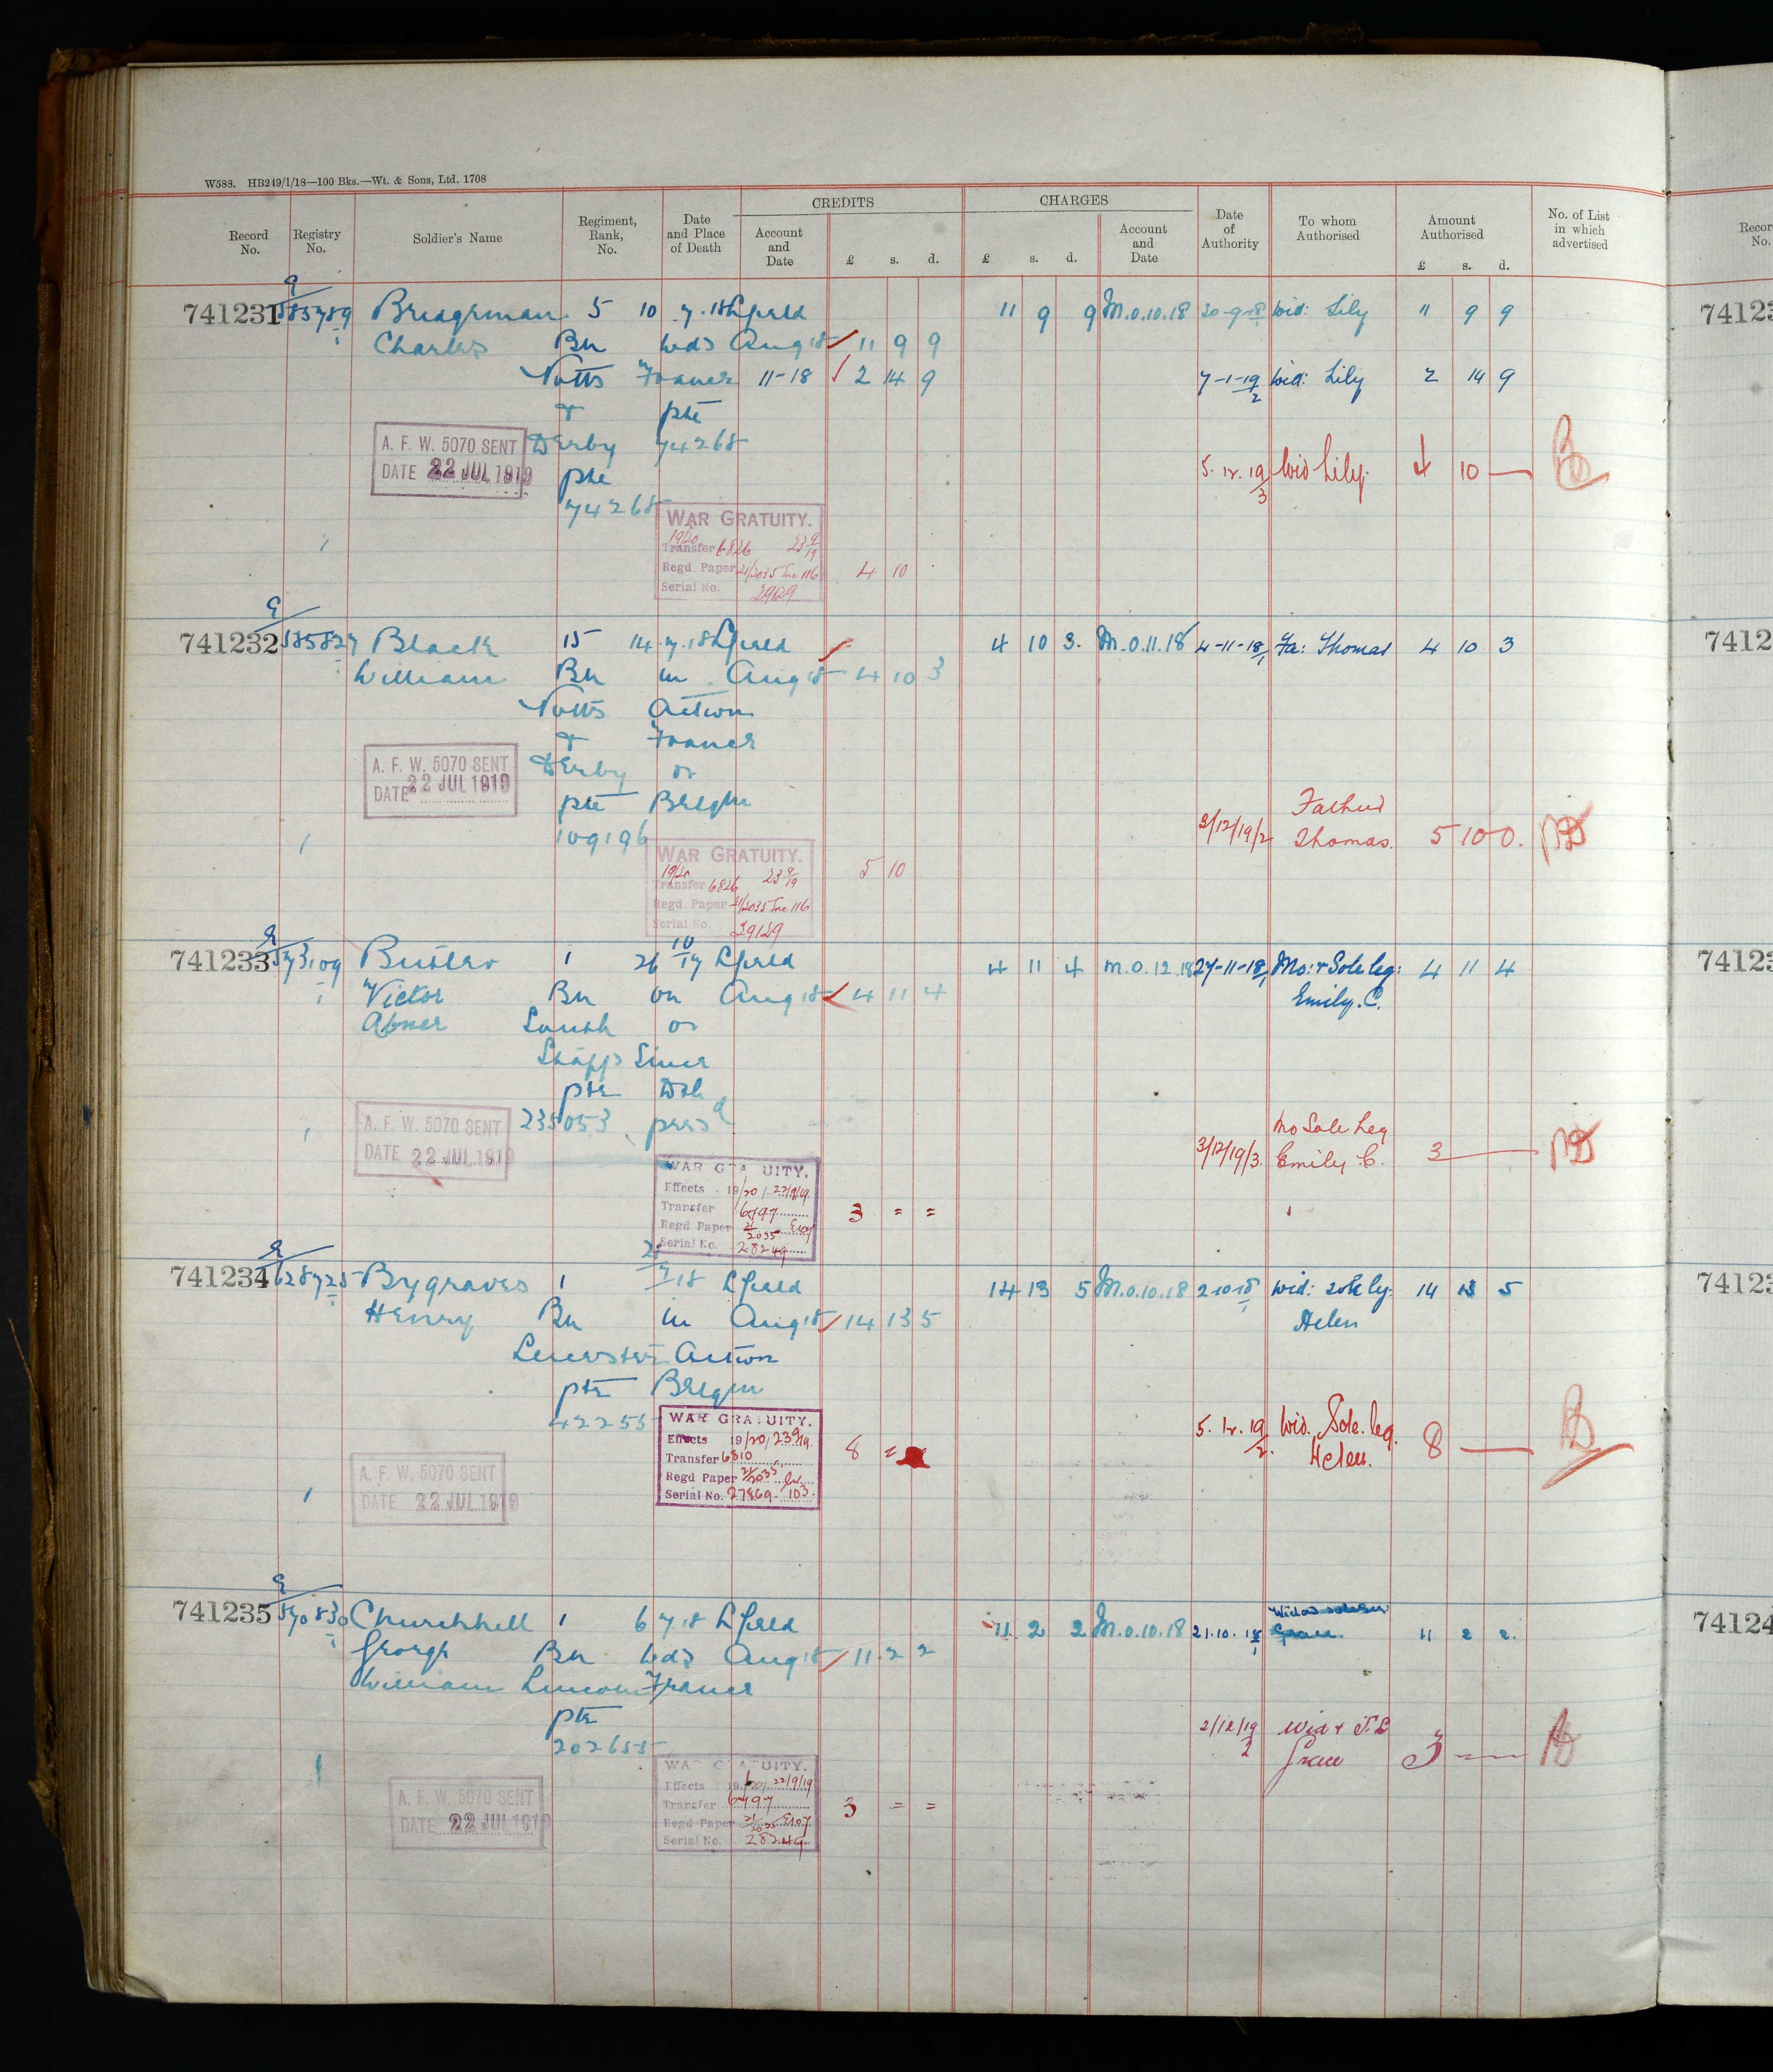 W588. HB249/1/18—100 Bks.—Wt. & Sons, Ltd. 1708
CREDITS CHARGES
Record No. Registry No. Soldier's Name Regiment, Rank, No. Date and Place of Death Account and Date £ s. d. £ s. d. Account and Date Date of Authority To whom Authorised Amount Authorised £ s. d. No. of List in which advertised
741231 585789 Bridgman 5 10 . 7 . 18 Lfield 11 9 9 M.O.10.18 wid: Lily 11 9 9
Charles Bn wds Aug 18 11 9 9
Notts France 11-18 2 14 9 7-1-19/2 wid: Lily 2 14 9
& pte
Derby 74268
A. F. W. 5070 SENT
DATE 22 JUL 1919
5. 12. 19/3 Wid Lily. 4 10 —
pte
74268
WAR GRATUITY.
19/20
Transfer 6826 23 9/19
Regd. Paper 21/2035 Inc 116 4 10
Serial No.
741232 585827 Black 15 14 . 7 . 18 Lfield 4 10 3. M.O.11.18 4-11-18/1 Fa: Thomas 4 10 3
William Bn in Aug 18 4 10 3
Notts Action
& France
Derby or
pte Belgm
109196
A. F. W. 5070 SENT
DATE 22 JUL 1919
3/12/19/2 Father
Thomas. 5 10 0.
WAR GRATUITY.
19/20
Transfer 6826 23 9/19 5 10
Regd. Paper 21/2035 Inc 116
Serial No. 29129
741233 573109 Butler 1 26 10/17 Lfield 4 11 4 M.O.12.18 27-11-18/1 Mo: & Sole leg: 4 11 4
Victor Bn on Aug 18 4 11 4 Emily. C.
Abner South or
Staffs since
pte Dth
235053 presd
A. F. W. 5070 SENT
DATE 22 JUL 1919
Mo Sole Leg
3/12/19/3. Emily C. 3 —
WAR GRATUITY.
Effects 19/20 22/9/19
Transfer 6797 3 = =
Regd Paper 21/2035 E107
Serial No. 28249
741234 628725 Bygraves 1 18 Lfield 14 13 5 M.O.10.18 2 10 18/1 wid: sole leg: 14 13 5
Henry Bn in Aug 18 14 13 5 Helen
Leicester Action
pte Belgm
42255
WAR GRATUITY.
Effects 19/20, 23 9/19.
Transfer 6810 8 =
Regd Paper 21/2035
Serial No. 27869 103
5. 12. 19/2. Wid. Sole. leg. 8 —
Helen.
A. F. W. 5070 SENT
DATE 22 JUL 1919
741235 570830 Churchhell 1 6 7 18 Lfield 11 2 2 M.O.10.18 21.10.18/1 Grace. 11 2 2.
George Bn wds Aug 18 11 2 2
William Lincoln France
pte
202655
2/12/19/2 Wid & S.L 3
Grace
WAR GRATUITY.
Effects 19/20 22/9/19
Transfer 6797 3 = =
Regd Paper 21/2035 E107
Serial No. 28249
A. F. W. 5070 SENT
DATE 22 JUL 1919